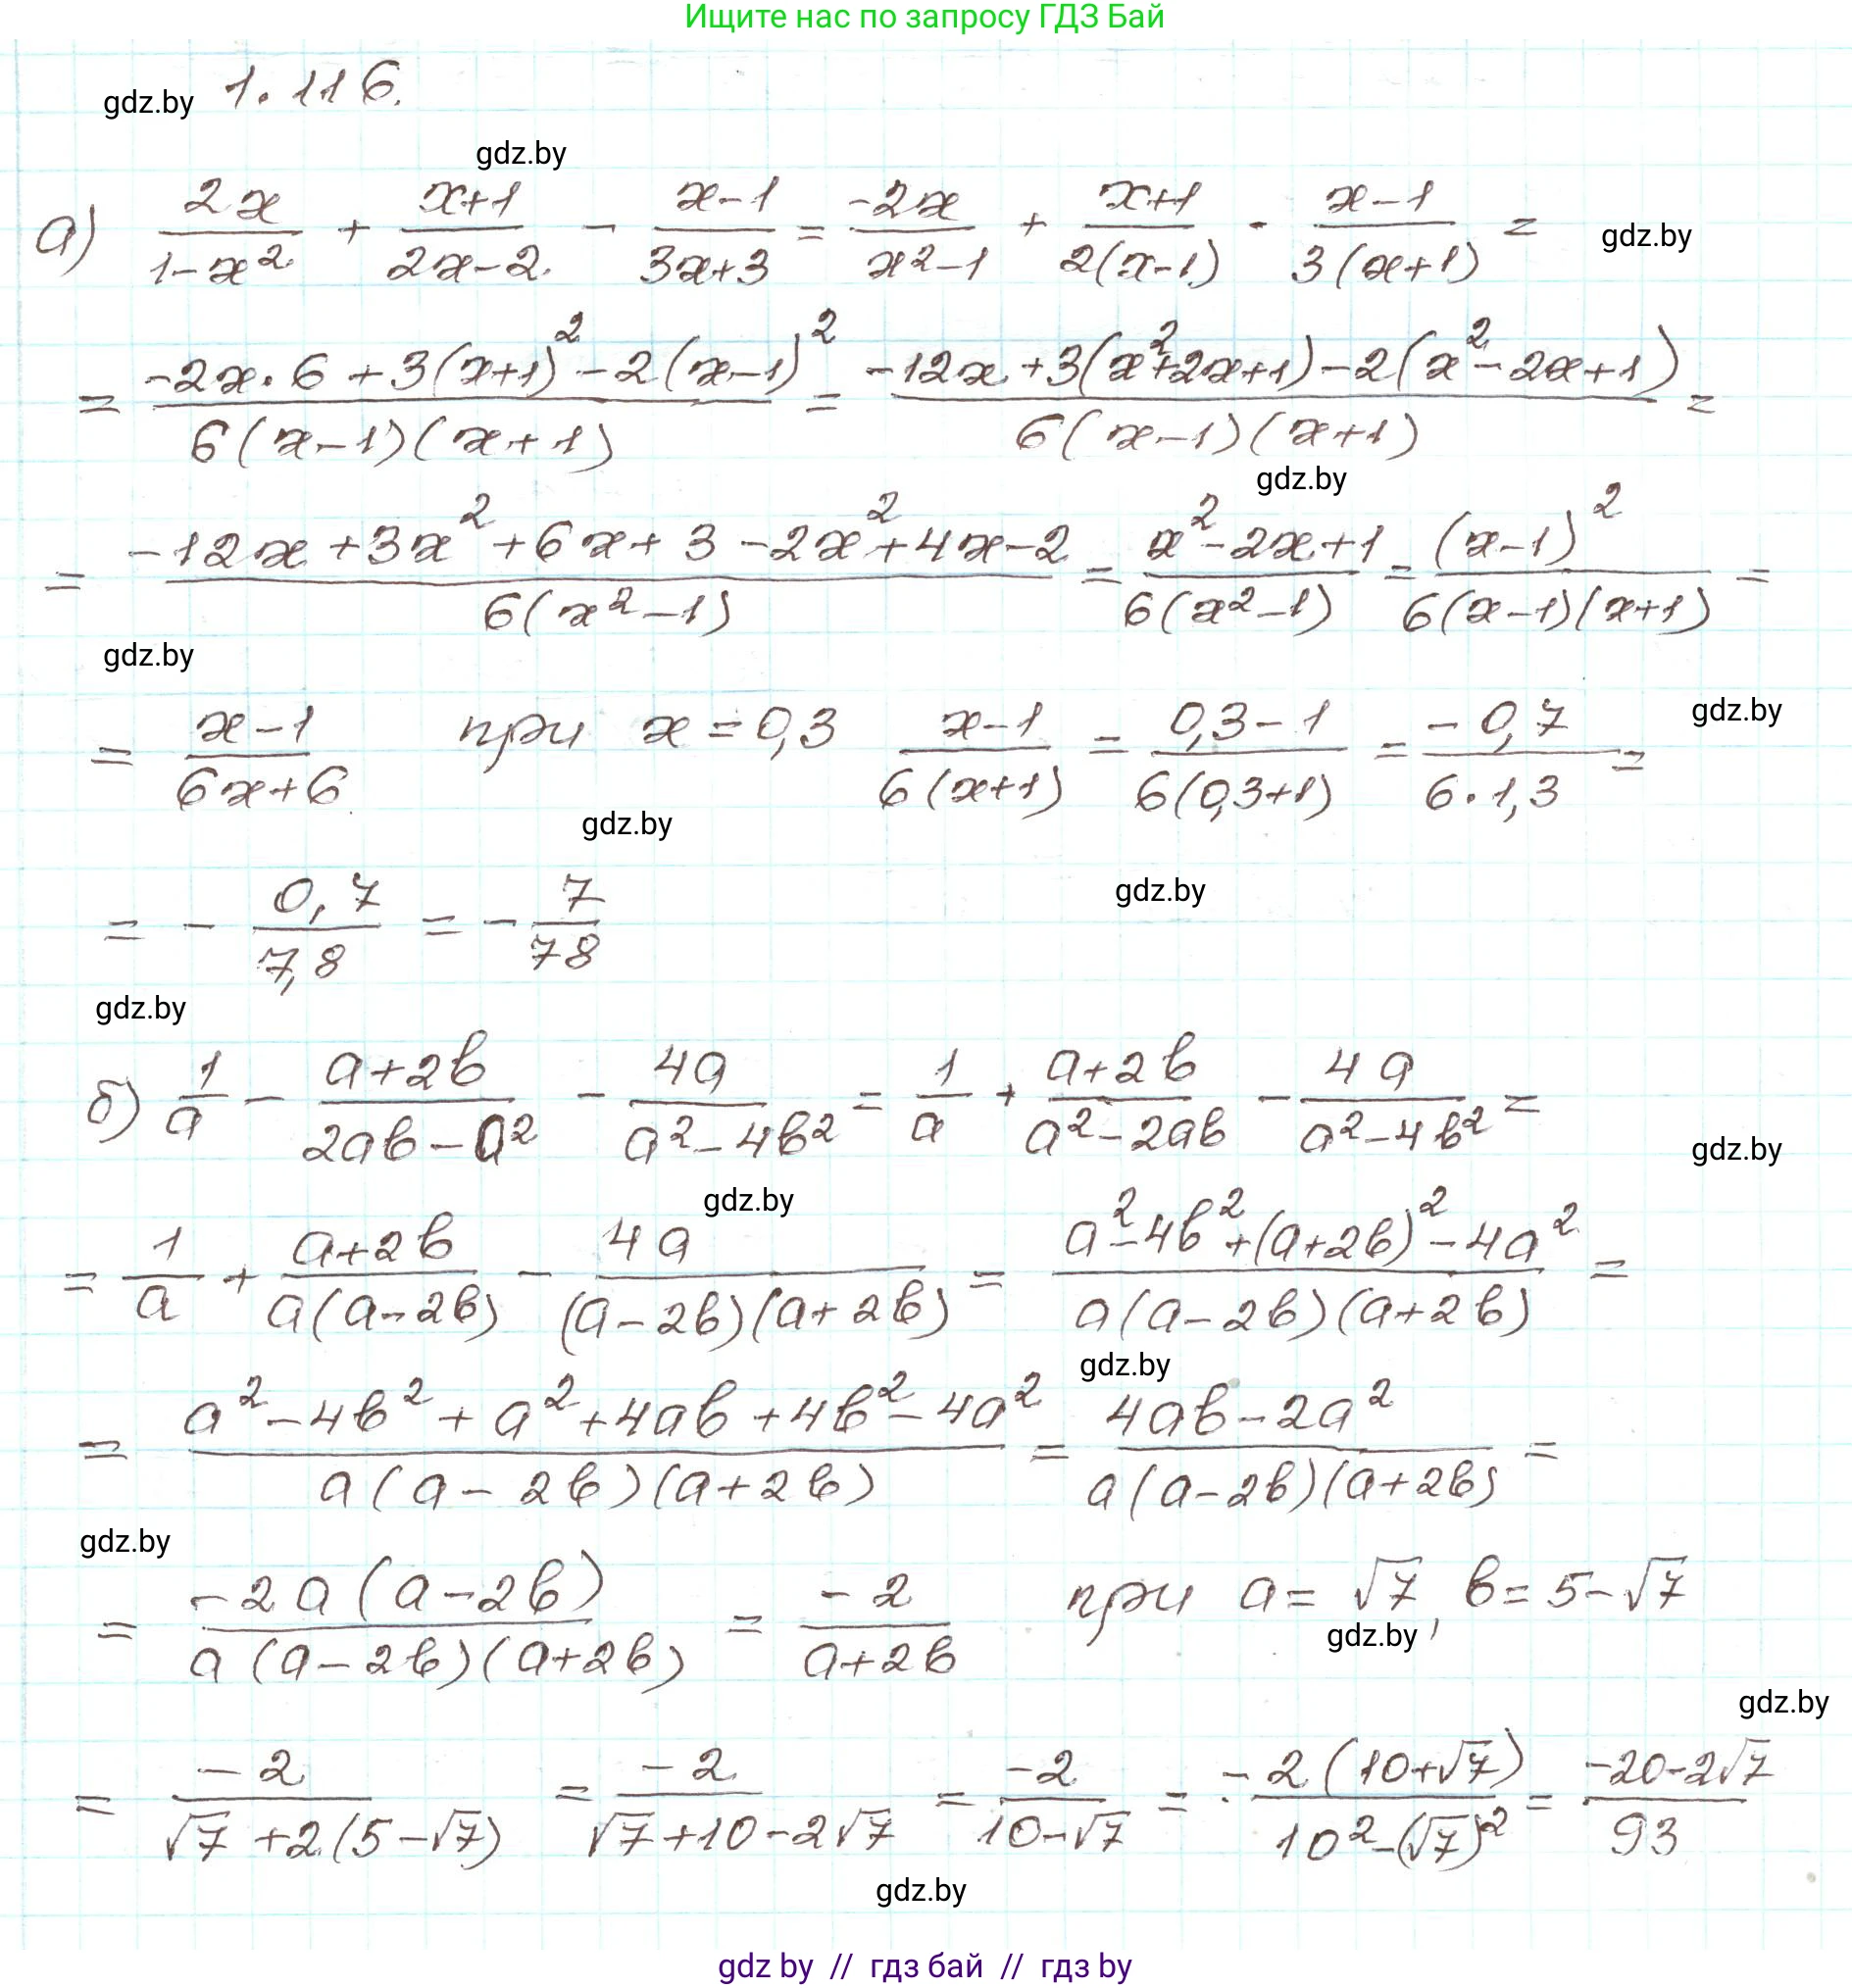 Ищите нас по запросу ГДЗ Бай
gdz.by 1.116.
gdz.by
а) 2x/(1-x²) + (x+1)/(2x-2) - (x-1)/(3x+3) = -2x/(x²-1) + (x+1)/(2(x-1)) - (x-1)/(3(x+1)) =
gdz.by
= (-2x·6+3(x+1)²-2(x-1)²)/(6(x-1)(x+1)) = (-12x+3(x²+2x+1)-2(x²-2x+1))/(6(x-1)(x+1)) =
gdz.by
= (-12x+3x²+6x+3-2x²+4x-2)/(6(x²-1)) = (x²-2x+1)/(6(x²-1)) = (x-1)²/(6(x-1)(x+1)) =
gdz.by
= (x-1)/(6x+6) при x=0,3 (x-1)/(6(x+1)) = (0,3-1)/(6(0,3+1)) = -0,7/(6·1,3) =
gdz.by
gdz.by
gdz.by
= - 0,7/7,8 = - 7/78
gdz.by
б) 1/a - (a+2b)/(2ab-a²) - 4a/(a²-4b²) = 1/a + (a+2b)/(a²-2ab) - 4a/(a²-4b²) =
gdz.by
gdz.by
= 1/a + (a+2b)/(a(a-2b)) - 4a/((a-2b)(a+2b)) = (a²-4b²+(a+2b)²-4a²)/(a(a-2b)(a+2b)) =
gdz.by
= (a²-4b²+a²+4ab+4b²-4a²)/(a(a-2b)(a+2b)) = (4ab-2a²)/(a(a-2b)(a+2b)) =
gdz.by
= -2a(a-2b)/(a(a-2b)(a+2b)) = -2/(a+2b) при a=√7, b=5-√7
gdz.by
gdz.by
= -2/(√7+2(5-√7)) = -2/(√7+10-2√7) = -2/(10-√7) = -2(10+√7)/(10²-(√7)²) = (-20-2√7)/93
gdz.by
gdz by // гдз бай // гдз by